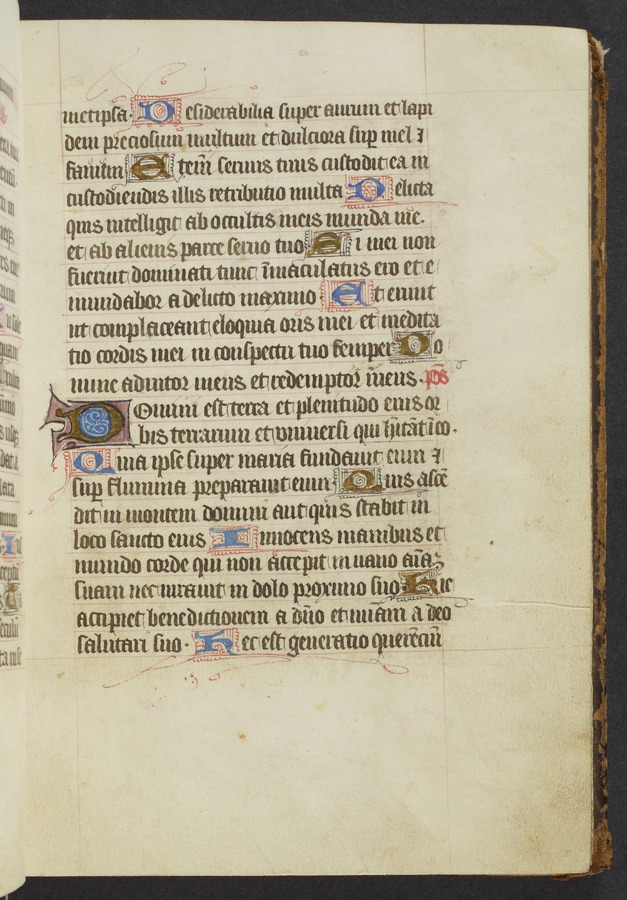 metipsa. Desiderabilia super aurum et lapi
dem preciosum multum et dulciora sup mel ⁊
fauum Etem seruus tuus custodit ea in
custodiendis illis retributio multa Delicta
quis intelligit ab occultis meis munda me.
et ab alienis parce seruo tuo Si mei non
fuerint dominati tunc īmaculatus ero et e
mundabor a delicto maximo Et erunt
ut complaceant eloquia oris mei et medita
tio cordis mei in conspectu tuo semper Do
mine adiutor meus et redemptor meus. ps
Domini est terra et plenitudo eius or
bis terrarum et vniuersi qui hītāt ī eo.
Quia ipse super maria fundauit eum ⁊
sup flumina preparauit eum Quis ascē
dit in montem domini aut quis stabit in
loco sancto eius Innocens manibus et
mundo corde qui non accepit in uano aīaȝ
suam nec iurauit in dolo proximo suo Hic
accipiet benedictionem a dn̄o et miām a deo
salutari suo. Hec est generatio querēciū